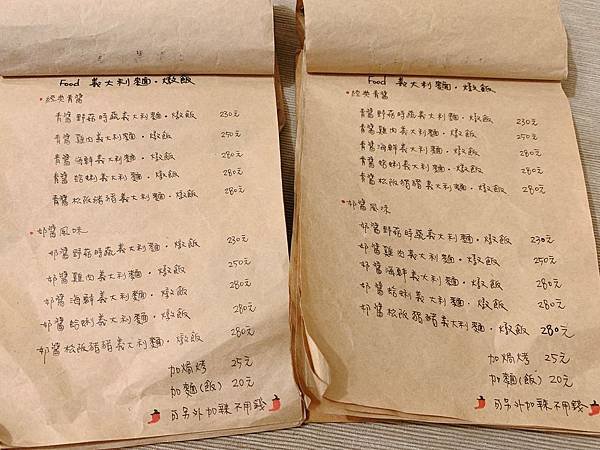 Food 義大利麵・燉飯
・經典青醬
青醬野菇時蔬義大利麵・燉飯 230元
青醬雞肉義大利麵・燉飯 250元
青醬海鮮義大利麵・燉飯 280元
青醬蛤蜊義大利麵・燉飯 280元
青醬松阪豬豬義大利麵・燉飯 280元
・奶醬風味
奶醬野菇時蔬義大利麵・燉飯 230元
奶醬雞肉義大利麵・燉飯 250元
奶醬海鮮義大利麵・燉飯 280元
奶醬蛤蜊義大利麵・燉飯 280元
奶醬松阪豬豬義大利麵・燉飯 280元
加焗烤 25元
加麵(飯) 20元
可另外加辣不用錢
Food 義大利麵・燉飯
・經典青醬
青醬野菇時蔬義大利麵・燉飯 230元
青醬雞肉義大利麵・燉飯 250元
青醬海鮮義大利麵・燉飯 280元
青醬蛤蜊義大利麵・燉飯 280元
青醬松阪豬豬義大利麵・燉飯 280元
・奶醬風味
奶醬野菇時蔬義大利麵・燉飯 230元
奶醬雞肉義大利麵・燉飯 250元
奶醬海鮮義大利麵・燉飯 280元
奶醬蛤蜊義大利麵・燉飯 280元
奶醬松阪豬豬義大利麵・燉飯 280元
加焗烤 25元
加麵(飯) 20元
可另外加辣不用錢